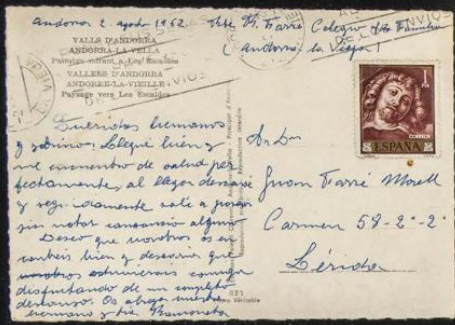 Andorra 2 agosto 1962. Farré Colegio Sda Familia
(Andorra la Vieja)
VALLS D'ANDORRA
ANDORRA-LA-VELLA
Paisatge anant a Les Escaldes
VALLEES D'ANDORRA
ANDORRE-LA-VIEILLE
Paysage vers Les Escaldes
Queridos hermanos
y sobrino: Llegué bien y
me encuentro de salud per
fectamente, al llegar descansé
y seguidamente salí a pasear
sin notar cansancio alguno
Deseo que vosotros os en
contréis bien y desearía que
vosotros estuvierais conmigo
disfrutando de un completo
descanso. Os abraza vuestro
hermano y tío Ramoneta
1 PTA
CORREOS
ESPAÑA
Sr. Don
Juan Farré Morell
Carmen 58-2º-2ª
Lérida